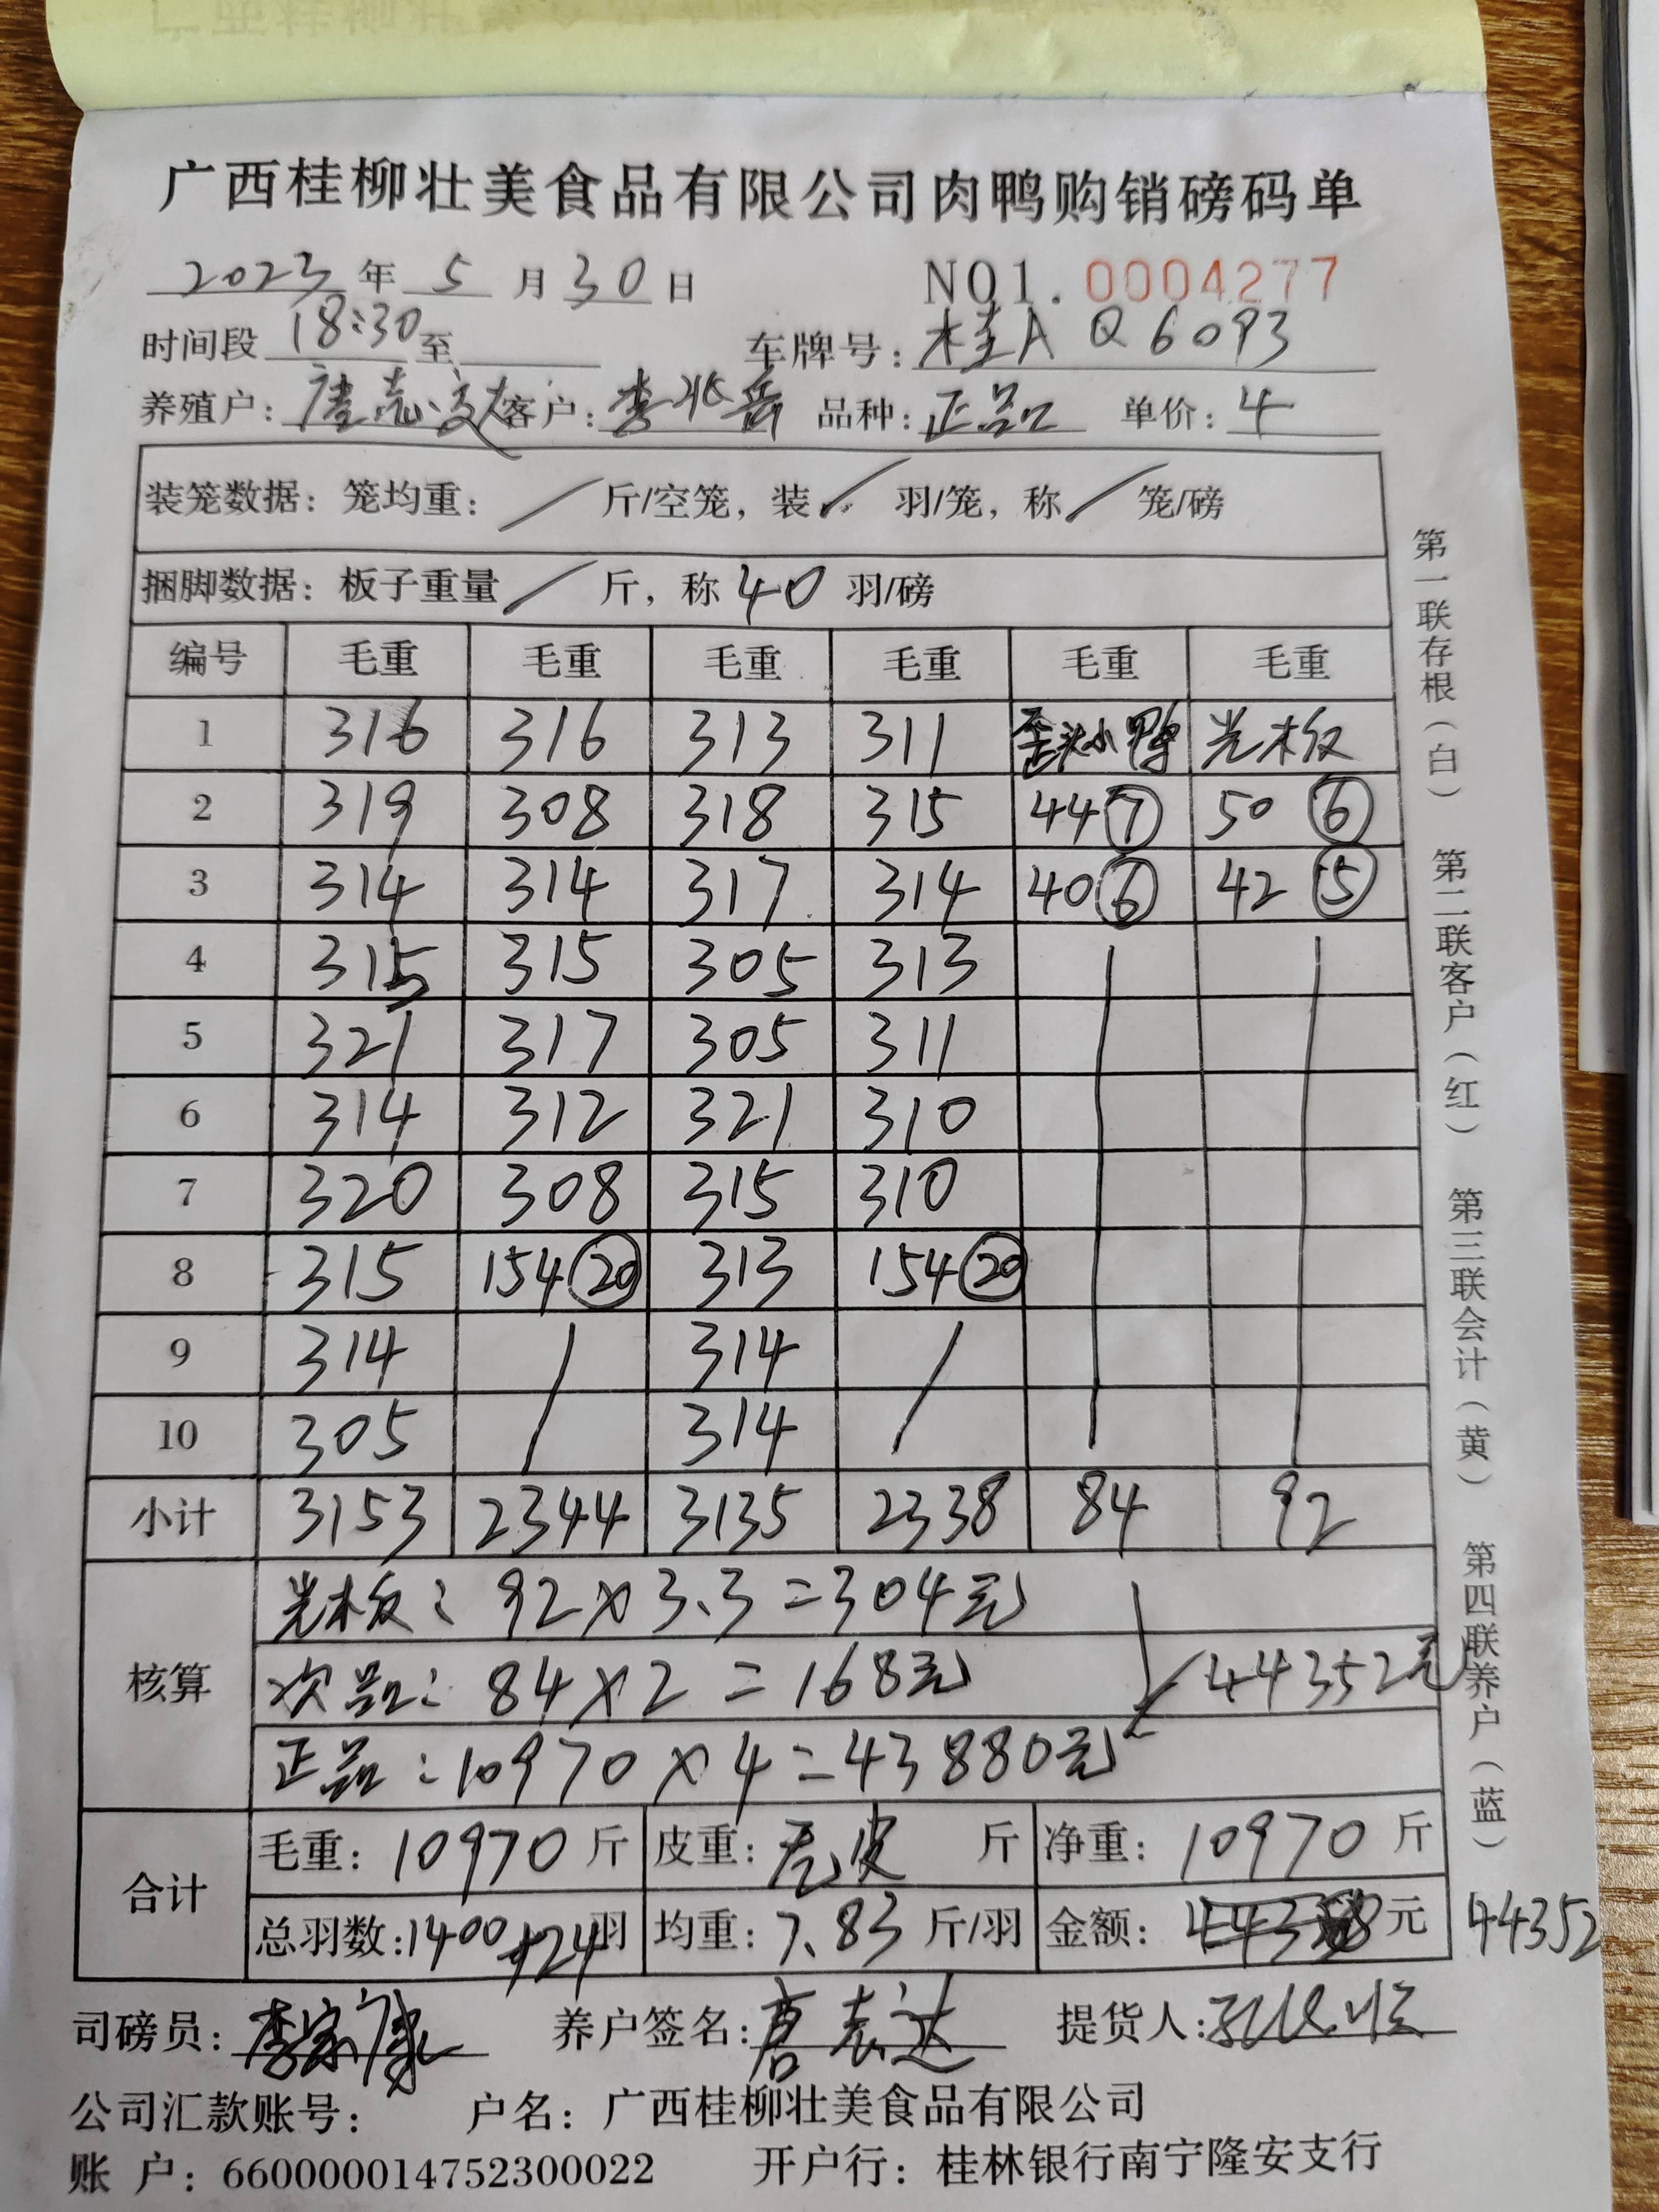 广西桂柳壮美食品有限公司肉鸭购销磅码单
2023年 5 月 30 日 NO1. 0004277
时间段 18:30 至 车牌号: 桂A Q6093
养殖户: 唐志达 客户: 李兆岳 品种: 正品 单价: 4
装笼数据: 笼均重: / 斤/空笼, 装 / 羽/笼, 称 / 笼/磅
捆脚数据: 板子重量 / 斤, 称 40 羽/磅
编号 毛重 毛重 毛重 毛重 毛重 毛重
1 316 316 313 311 歪头小鸭 光板
2 319 308 318 315 44⑦ 50⑥
3 314 314 317 314 40⑥ 42⑤
4 315 315 305 313
5 321 317 305 311
6 314 312 321 310
7 320 308 315 310
8 315 154⑳ 313 154⑳
9 314 / 314 /
10 305 314
小计 3153 2344 3135 2338 84 92
核算
光板: 92×3.3=304元
次品: 84×2=168元 44352元
正品: 10970×4=43880元
合计
毛重: 10970 斤 皮重: 无皮 斤 净重: 10970 斤
总羽数: 1400+24羽 均重: 7.83 斤/羽 金额: 元 44352
司磅员: 养户签名: 唐志达 提货人:
公司汇款账号: 户名: 广西桂柳壮美食品有限公司
账 户: 660000014752300022 开户行: 桂林银行南宁隆安支行
第一联存根(白) 第二联客户(红) 第三联会计(黄) 第四联养户(蓝)